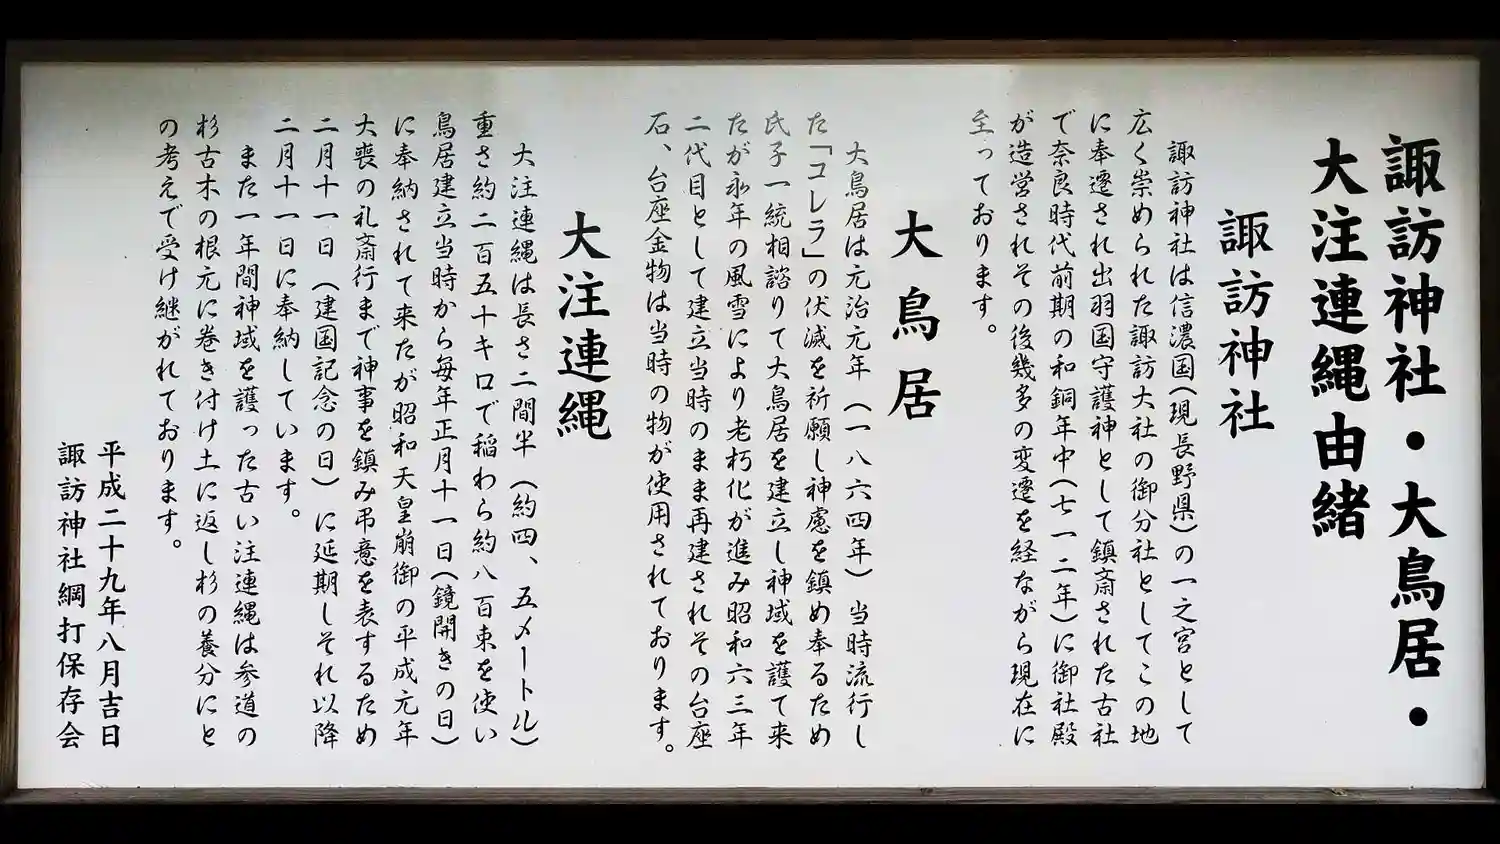 諏訪神社・大鳥居・
大注連縄由緒
諏訪神社
諏訪神社は信濃国(現長野県)の一之宮として
広く崇められた諏訪大社の御分社としてこの地
に奉遷され出羽国守護神として鎮斎された古社
で奈良時代前期の和銅年中(七一二年)に御社殿
が造営されその後幾多の変遷を経ながら現在に
至っております。
大鳥居
大鳥居は元治元年(一八六四年)当時流行し
た「コレラ」の伏滅を祈願し神慮を鎮め奉るため
氏子一統相諮りて大鳥居を建立し神域を護て来
たが永年の風雪により老朽化が進み昭和六三年
二代目として建立当時のまま再建されその台座
石、台座金物は当時の物が使用されております。
大注連縄
大注連縄は長さ二間半(約四、五メートル)
重さ約二百五十キロで稲わら約八百束を使い
鳥居建立当時から毎年正月十一日(鏡開きの日)
に奉納されて来たが昭和天皇崩御の平成元年
大喪の礼斎行まで神事を鎮み弔意を表するため
二月十一日(建国記念の日)に延期しそれ以降
二月十一日に奉納しています。
また一年間神域を護った古い注連縄は参道の
杉古木の根元に巻き付け土に返し杉の養分にと
の考えで受け継がれております。
平成二十九年八月吉日
諏訪神社綱打保存会